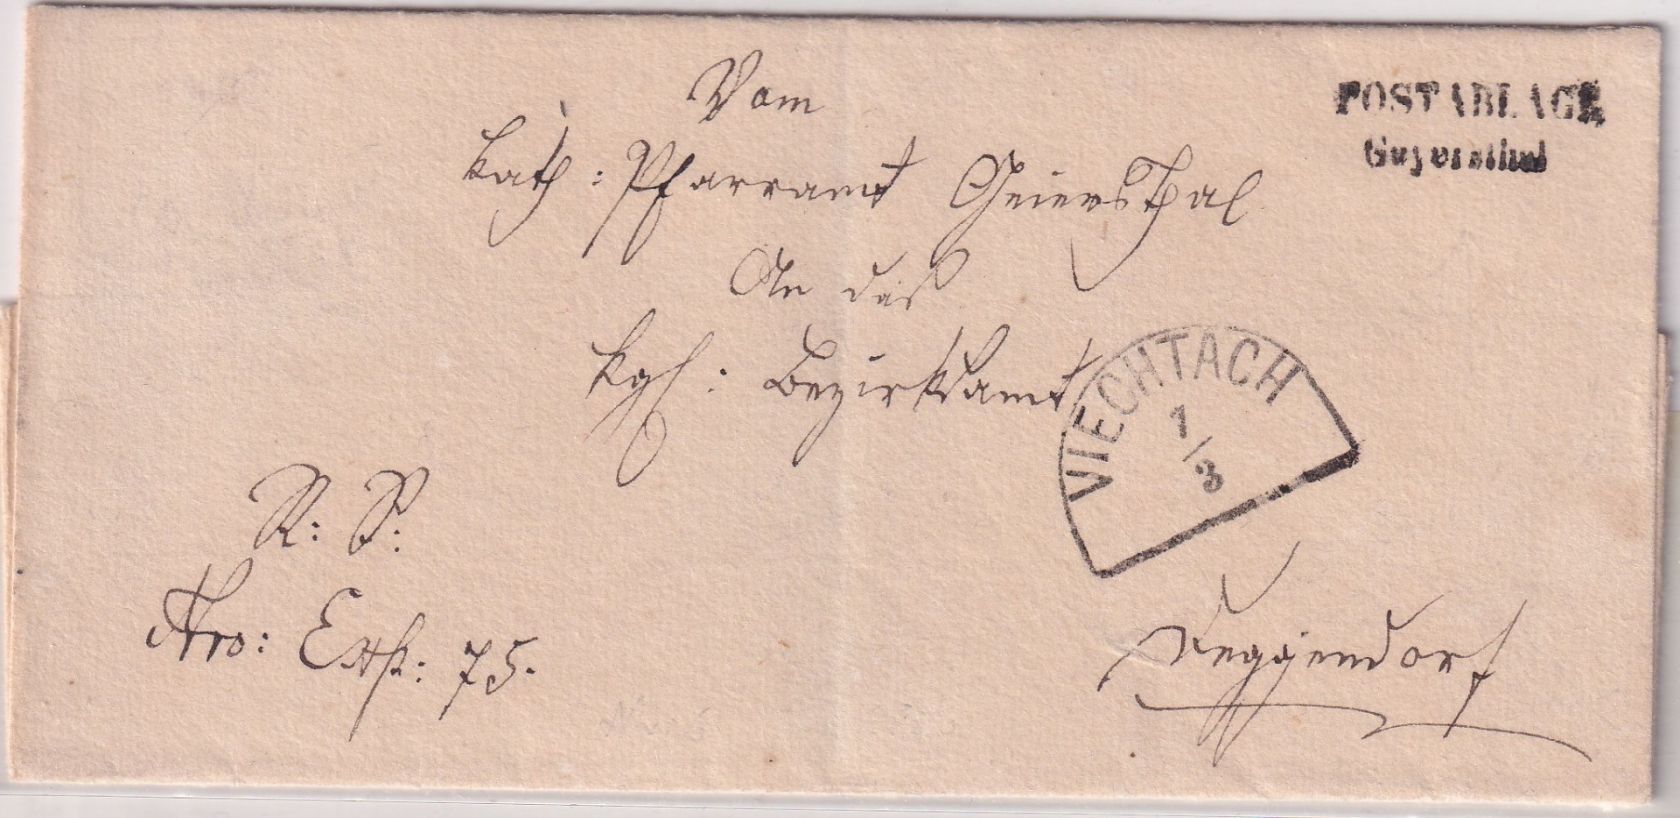 POSTABLAGE
Geyersthal
Vom
kath: Pfarramt Geiersthal
An das
kgl: Bezirksamt
VIECHTACH
1/3
R. S.
Nro: Exp: 75.
Deggendorf